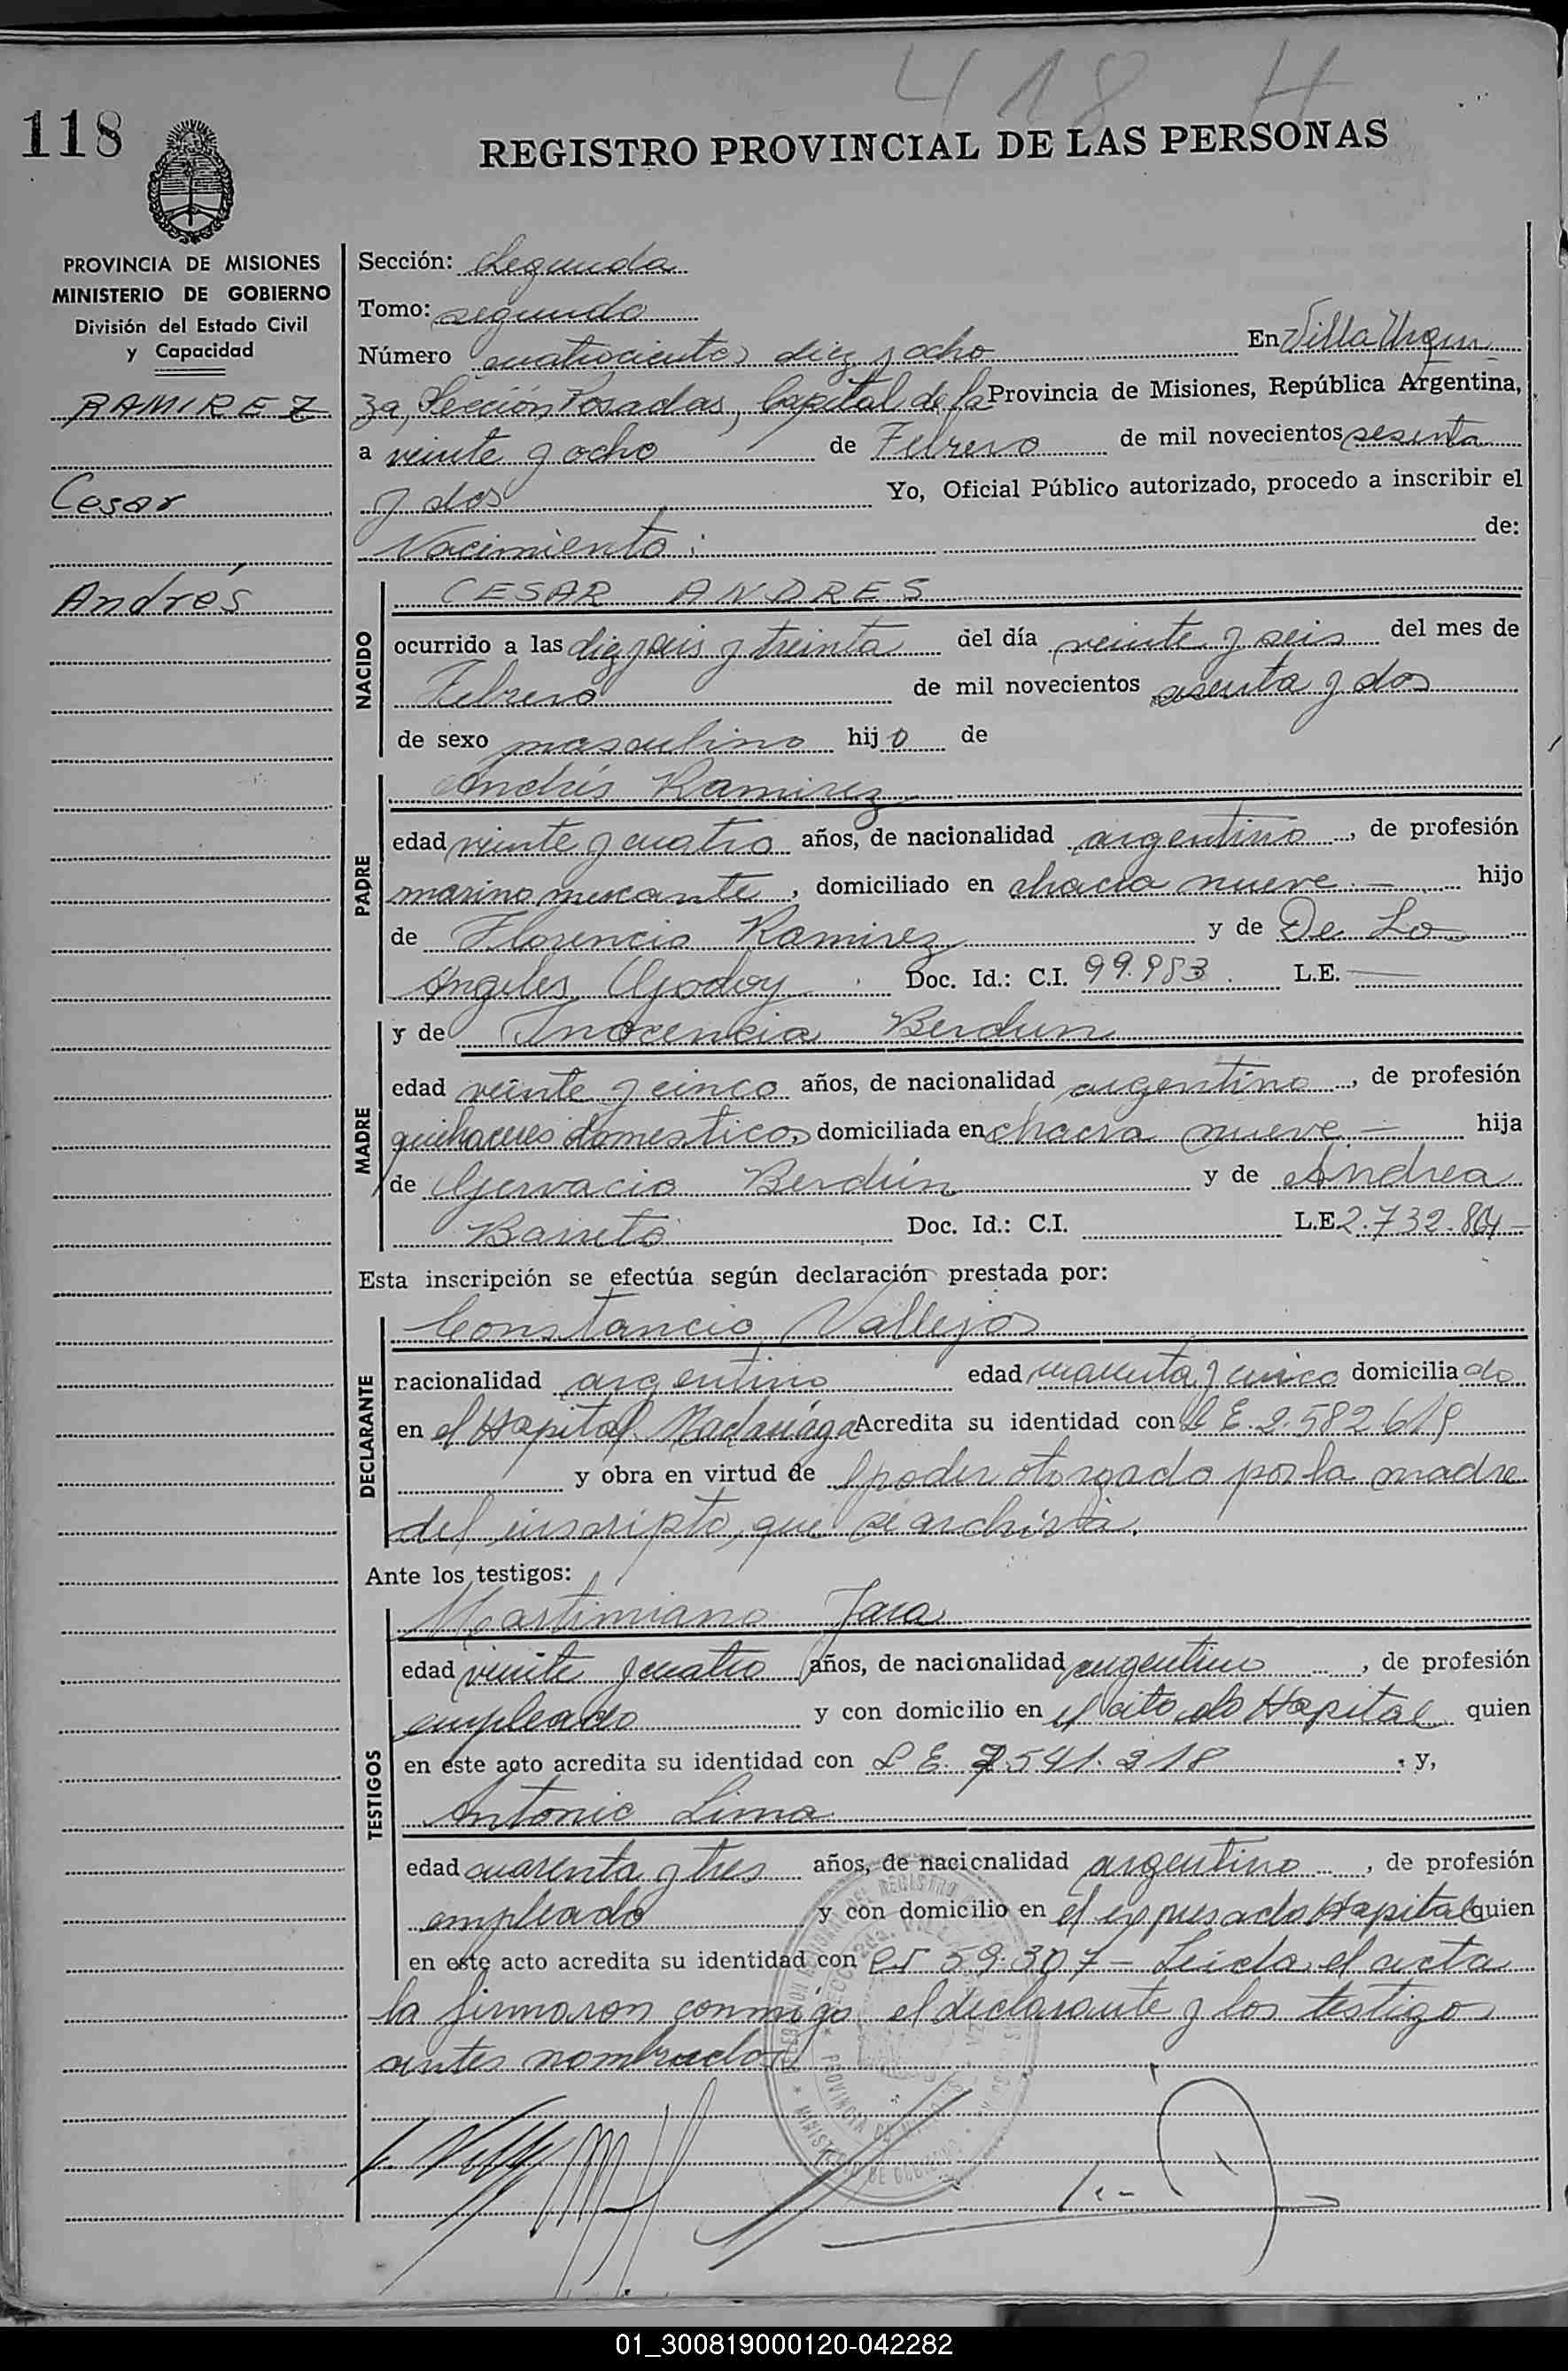 418 H
118
REGISTRO PROVINCIAL DE LAS PERSONAS
PROVINCIA DE MISIONES
MINISTERIO DE GOBIERNO
División del Estado Civil
y Capacidad
RAMIREZ
Cesar
Andrés
Sección: Segunda
Tomo: segundo
Número cuatrocientos diez y ocho En Villa Urqui
za, Sección Posadas, Capital de la Provincia de Misiones, República Argentina,
a veinte y ocho de Febrero de mil novecientos sesenta
y dos Yo, Oficial Público autorizado, procedo a inscribir el
Nacimiento: de:
NACIDO
CESAR ANDRES
ocurrido a las diez y seis y treinta del día veinte y seis del mes de
Febrero de mil novecientos sesenta y dos
de sexo masculino hijo de
PADRE
Andrés Ramirez
edad veinte y cuatro años, de nacionalidad argentino, de profesión
marino mercante, domiciliado en chacra nueve.— hijo
de Florencio Ramirez y de De Lo
Angeles Godoy Doc. Id.: C.I. 99.983. L.E. —
MADRE
y de Inocencia Berdun
edad veinte y cinco años, de nacionalidad argentina, de profesión
quehaceres domesticos, domiciliada en chacra nueve.— hija
de Gervacio Berdún y de Andrea
Barreto Doc. Id.: C.I. L.E. 2.732.864—
Esta inscripción se efectúa según declaración prestada por:
DECLARANTE
Constancio Vallejos
nacionalidad argentino edad cuarenta y cinco domiciliado
en el Hospital Madariaga Acredita su identidad con L E. 2.582.619
y obra en virtud de poder otorgado por la madre
del inscripto, que se archiva.
Ante los testigos:
TESTIGOS
Martimiano Jara
edad veinte y cuatro años, de nacionalidad argentino, de profesión
empleado y con domicilio en el citado Hospital quien
en este acto acredita su identidad con L E. 7.541.218. y,
Antonio Lima
edad cuarenta y tres años, de nacionalidad argentino, de profesión
empleado y con domicilio en el expresado Hospital quien
en este acto acredita su identidad con 59.307 — Leida el acta
la firmaron conmigo el declarante y los testigos
antes nombrados
01_300819000120-042282